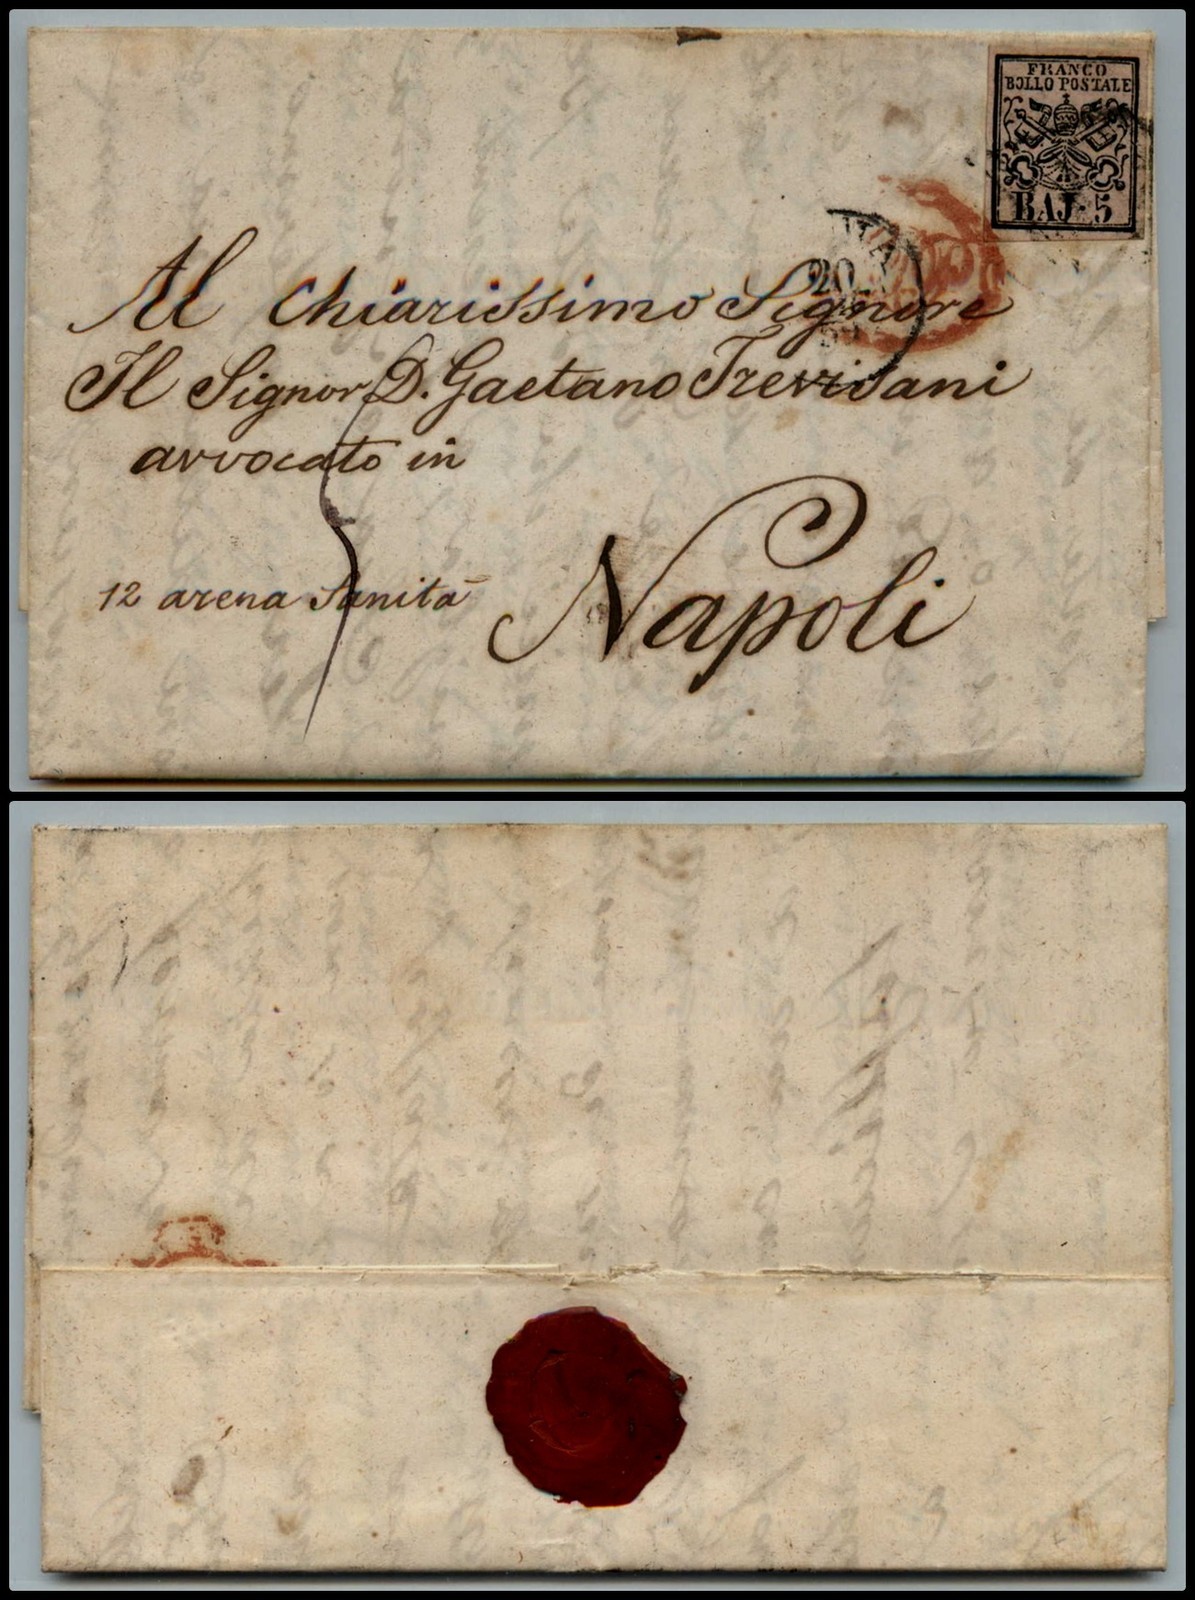 FRANCO
BOLLO POSTALE
BAJ. 5
20
Al Chiarissimo Signore
Il Signor D. Gaetano Trevisani
avvocato in
Napoli
12 arena Sanità